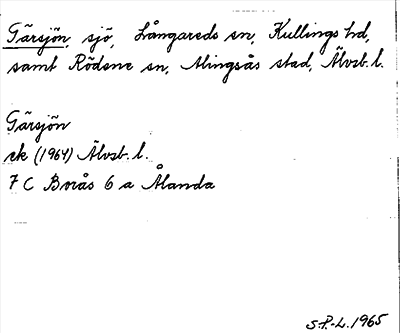 Färsjön, sjö, Långareds sn, Kullings hd,
samt Rödene sn, Alingsås stad, Älvsb. l.
Färsjön
ek (1964) Älvsb. l.
7 C Borås 6 a Ålanda
S.P.-L. 1965